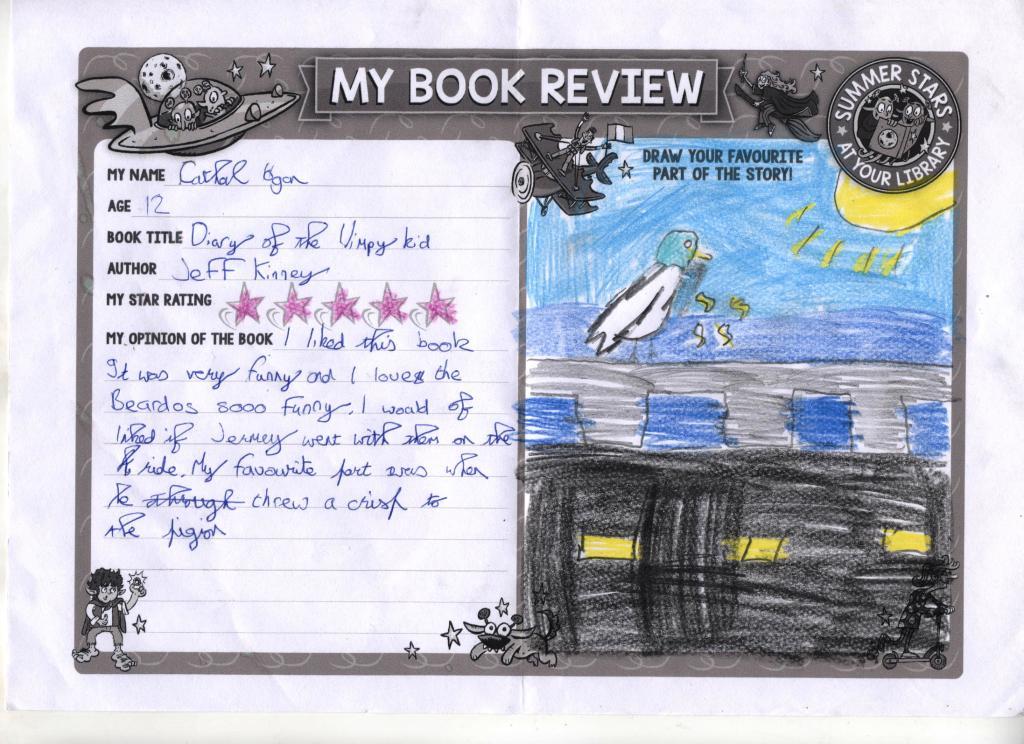 MY BOOK REVIEW
SUMMER STARS
AT YOUR LIBRARY
MY NAME Cathal Egan
AGE 12
BOOK TITLE Diary of the Wimpy kid
AUTHOR Jeff Kinney
MY STAR RATING
MY OPINION OF THE BOOK I liked this book
It was very funny and I loves the
Beardos sooo Funny. I would of
liked if Jermey went with them on the
ride. My favourite part was when
he through threw a crisp to
the pigon
DRAW YOUR FAVOURITE
PART OF THE STORY!